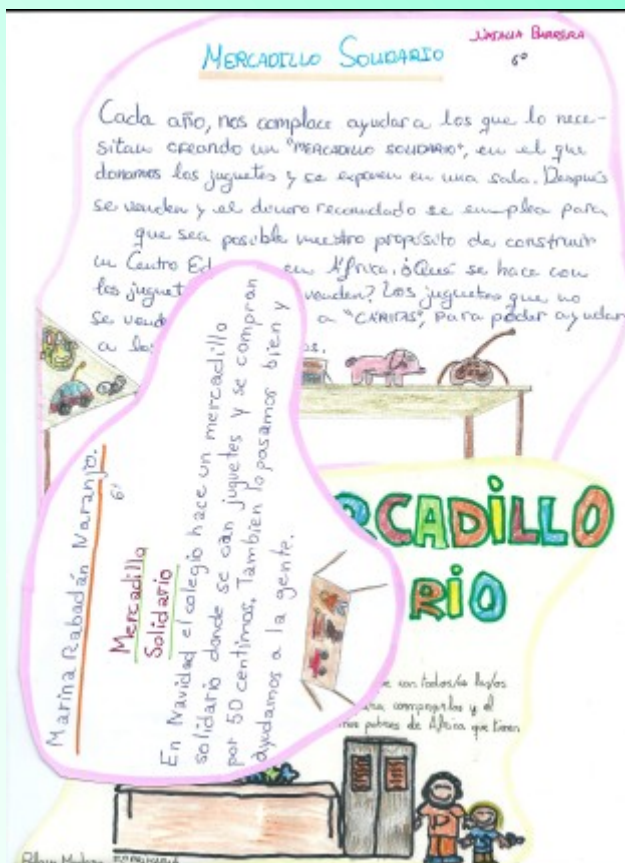 MERCADILLO SOLIDARIO
NATALIA BARRERA
6º
Cada año, nos complace ayudar a los que lo nece-
sitan creando un "MERCADILLO SOLIDARIO", en el que
donamos los juguetes y se exponen en una sala. Después
se venden y el dinero recaudado se emplea para
que sea posible nuestro propósito de construir
un Centro Ed en África. ¿Qué se hace con
los juguet venden? Los juguetes que no
se vend a "CÁRITAS", para poder ayudar
a los os.
Marina Rabadán Naranjo.
6º
Mercadillo
Solidario
En Navidad el colegio hace un mercadillo
solidario donde se dan juguetes y se compran
por 50 centimos. Tambien lo pasamos bien y
ayudamos a la gente.
RCADILLO
RIO
e con todos/as los/as
ara comprarlos y el
nos pobres de África que tienen